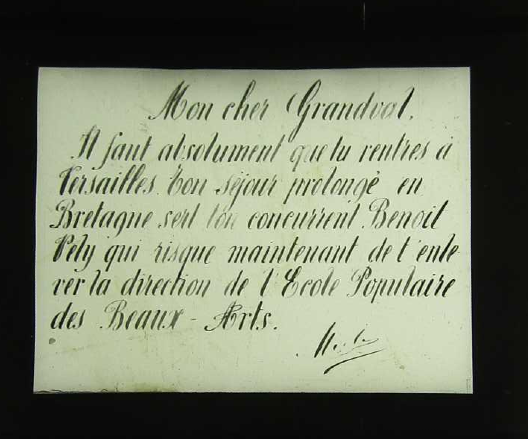 Mon cher Grandval,
Il faut absolument que tu rentres à
Versailles. Ton séjour prolongé en
Bretagne sert ton concurrent Benoit
Pely qui risque maintenant de t'enle
ver la direction de l'Ecole Populaire
des Beaux-Arts.